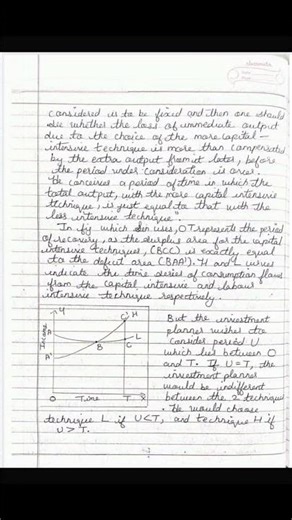 considered is to be fixed and then one should
see whether the loss of immediate output
due to the choice of the more capital-
intensive technique is more than compensated
by the extra output from it later, before
the period under consideration is over.
"He conceives a period of time in which the
total output, with the more capital intensive
technique, is just equal to that with the
less intensive technique".
In fig which Sen uses, OT represents the period
of recovery, as the surplus area for the capital
intensive techniques, (BCC') is exactly equal
to the deficit area (BAA'). H and L curves
indicate the time series of consumption flows
from the capital intensive and labour
intensive technique respectively.
Y
C' H
Income
A
A'
B
C
L
O Time T X
But the investment
planner wishes to
consider period U
which lies between O
and T. If U=T, the
investment planner
would be indifferent
between the 2 technique
. He would choose
technique L if U<T, and technique H if
U>T.